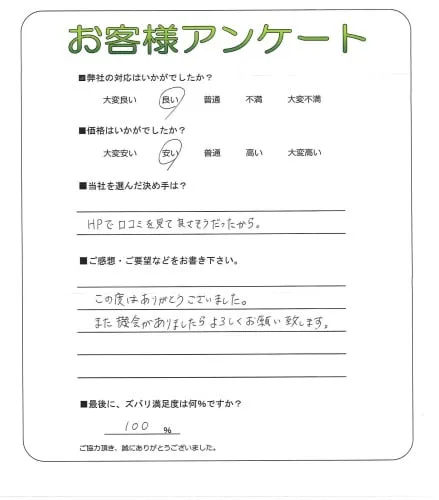 お客様アンケート
■弊社の対応はいかがでしたか？
大変良い 良い 普通 不満 大変不満
■価格はいかがでしたか？
大変安い 安い 普通 高い 大変高い
■当社を選んだ決め手は？
HPで口コミを見て良さそうだったから。
■ご感想・ご要望などをお書き下さい。
この度はありがとうございました。
また機会がありましたらよろしくお願い致します。
■最後に、ズバリ満足度は何%ですか？
100 %
ご協力頂き、誠にありがとうございました。